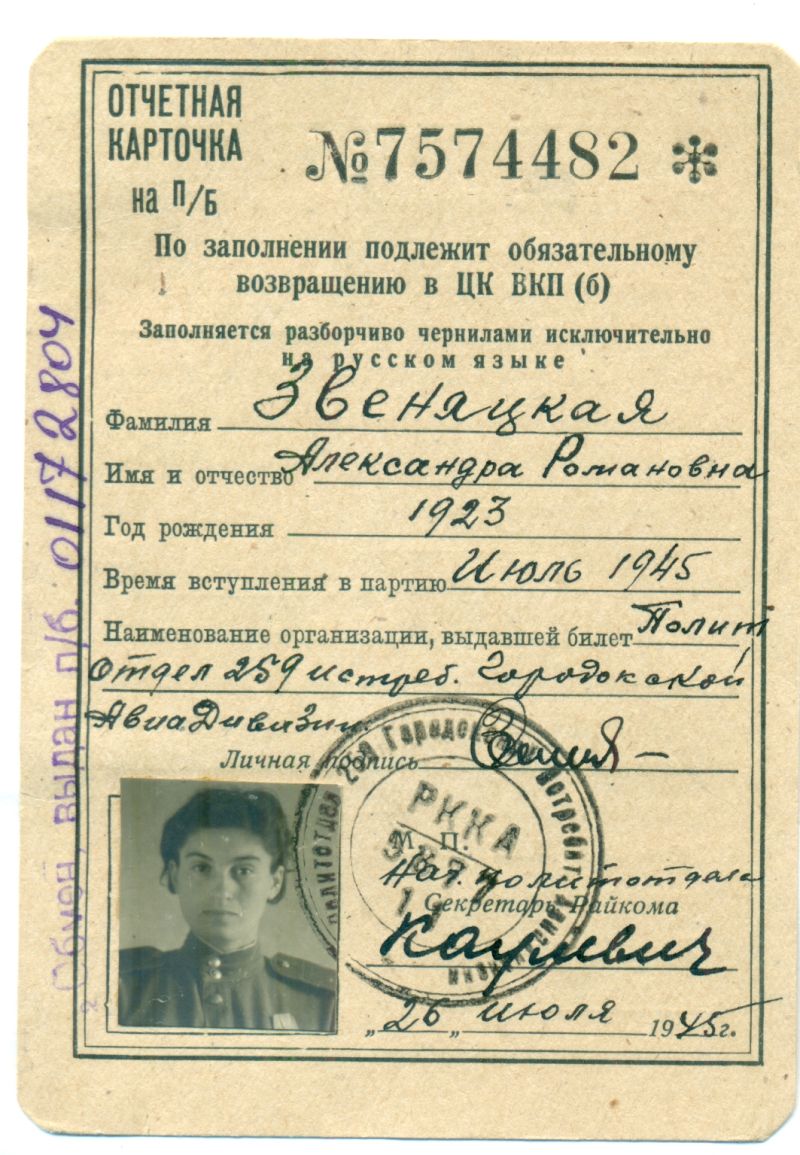 ОТЧЕТНАЯ
КАРТОЧКА
на П/Б
№7574482
По заполнении подлежит обязательному
возвращению в ЦК ВКП (б)
Заполняется разборчиво чернилами исключительно
на русском языке
Фамилия Звеняцкая
Имя и отчество Александра Романовна
Год рождения 1923
Время вступления в партию Июль 1945
Наименование организации, выдавшей билет Полит
Отдел 259 истреб. Городокской
АвиаДивизии
Личная подпись
РККА
М. П.
Нач. политотдела
Секретарь Райкома
„26„ июля 1945г.
Обмен, выдан п/б. 01172804